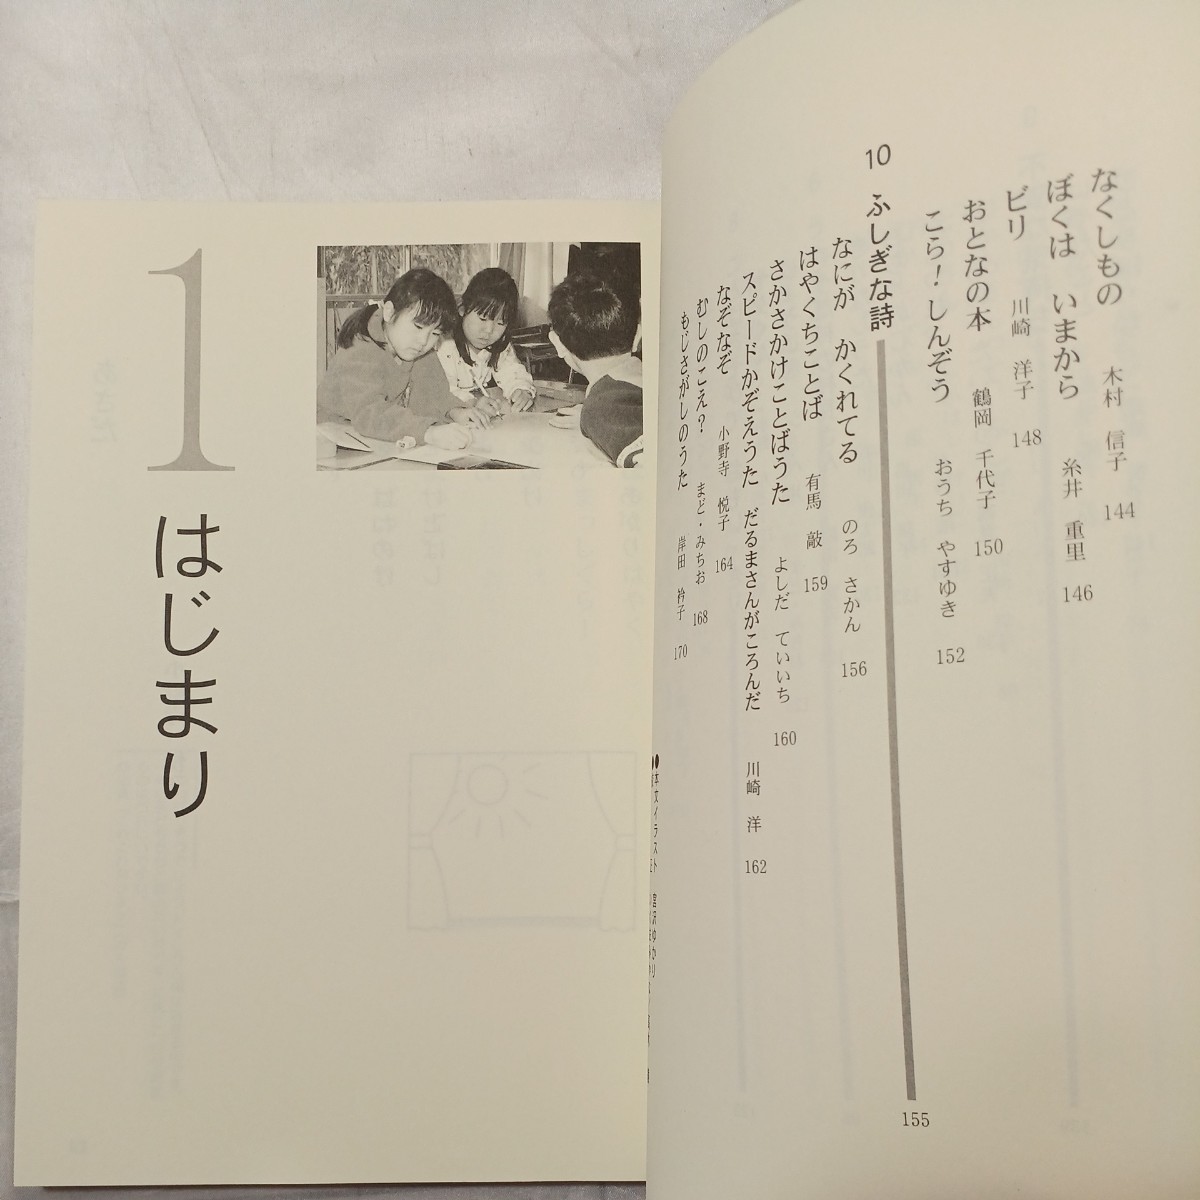 なくしもの 木村 信子 144
ぼくは いまから 糸井 重里 146
ビリ 川崎 洋子 148
おとなの本 鶴岡 千代子 150
こら！しんぞう おうち やすゆき 152
10 ふしぎな詩 155
なにが かくれてる のろ さかん 156
はやくちことば 有馬 敲 159
さかさかけことばうた よしだ ていいち 160
スピードかぞえうた だるまさんがころんだ 川崎 洋 162
なぞなぞ 小野寺 悦子 164
むしのこえ？ まど・みちお 168
もじさがしのうた 岸田 衿子 170
●本文イラスト 宮沢ゆかり
1
はじまり